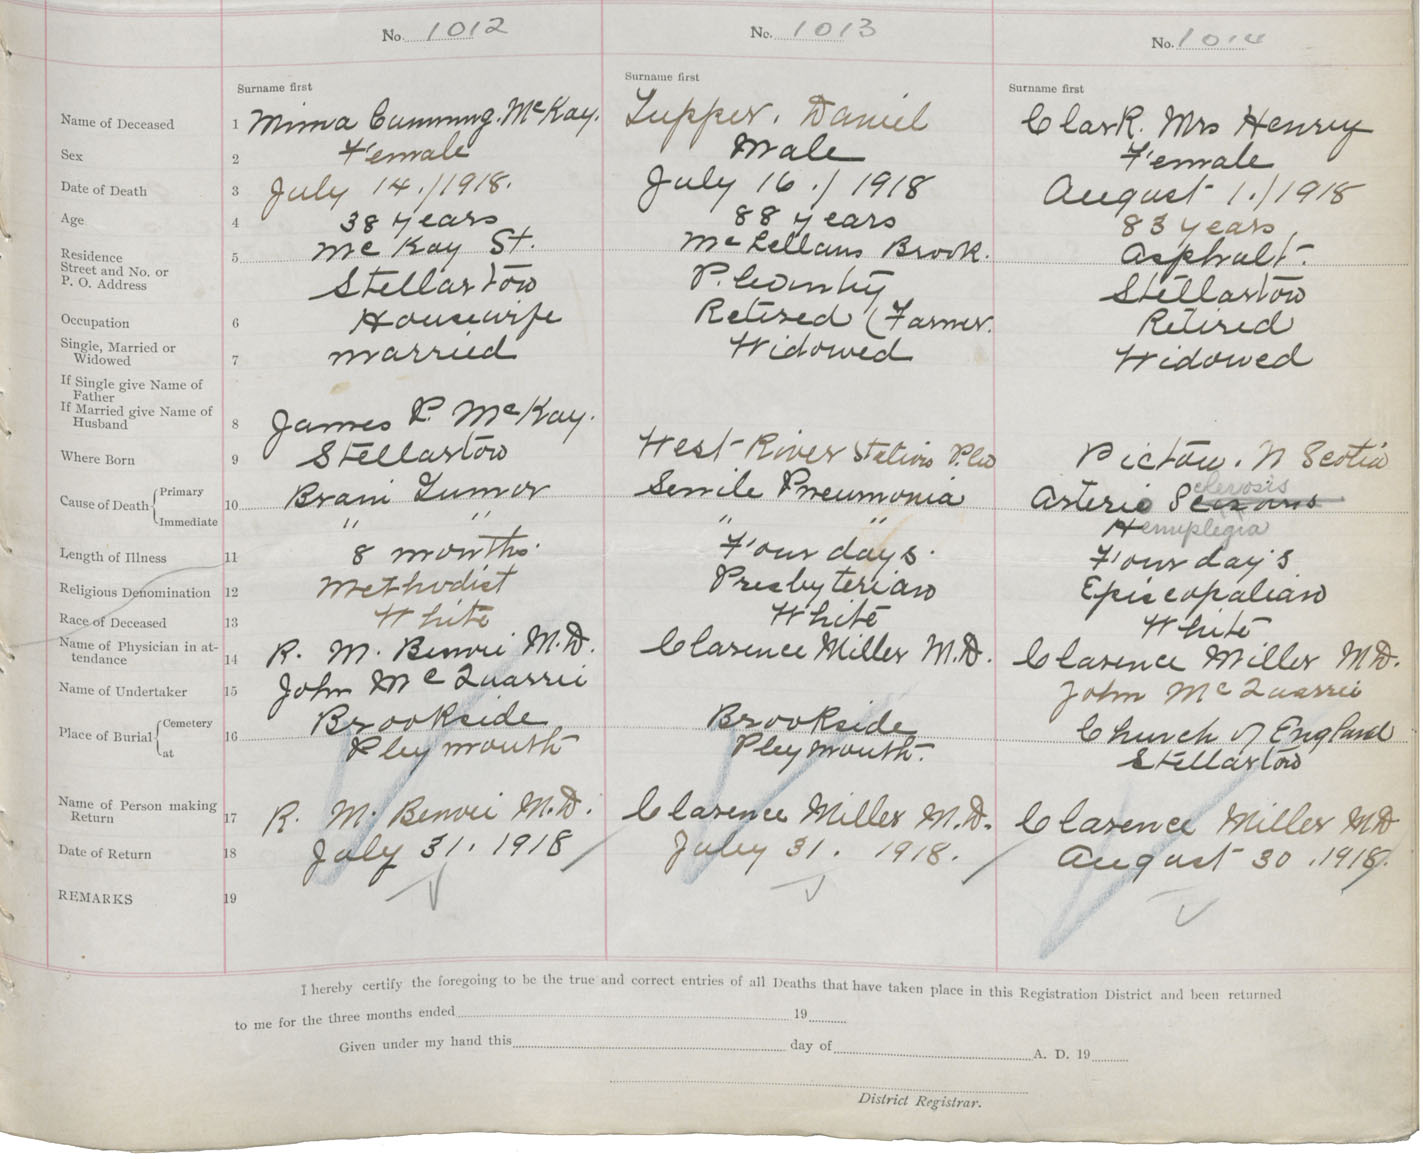 No. 1012 No. 1013 No. 1014
Surname first Surname first Surname first
Name of Deceased 1 Mima Cumming. McKay. Tupper. Daniel Clark. Mrs Henry
Sex 2 Female Male Female
Date of Death 3 July 14./1918. July 16./1918 August 1./1918
Age 4 38 years 88 years 83 years
Residence 5 McKay St. McLellans Brook. Asphalt.
Street and No. or
P. O. Address Stellarton P. County Stellarton
Occupation 6 Housewife Retired (Farmer. Retired
Single, Married or
Widowed 7 married Widowed Widowed
If Single give Name of
Father
If Married give Name of
Husband 8 James P. McKay.
Where Born 9 Stellarton West River Station P.Co Pictou. N Scotia
Cause of Death Primary 10 Brain Tumor Senile Pneumonia Arterio Sclerosis
Immediate " " " " Hemiplegia
Length of Illness 11 8 months. Four days. Four day's
Religious Denomination 12 Methodist Presbyterian Episcopalian
Race of Deceased 13 White White White
Name of Physician in at-
tendance 14 R. M. Benvie M.D. Clarence Miller M.D. Clarence Miller MD.
Name of Undertaker 15 John McQuarrie John McQuarrie
Place of Burial Cemetery 16 Brookside Brookside Church of England
at Pleymouth Pleymouth. Stellarton
Name of Person making
Return 17 R. M. Benvie M.D. Clarence Miller M.D. Clarence Miller MD
Date of Return 18 July 31. 1918 July 31. 1918. August 30. 1918.
REMARKS 19
I hereby certify the foregoing to be the true and correct entries of all Deaths that have taken place in this Registration District and been returned
to me for the three months ended 19
Given under my hand this day of A. D. 19
District Registrar.